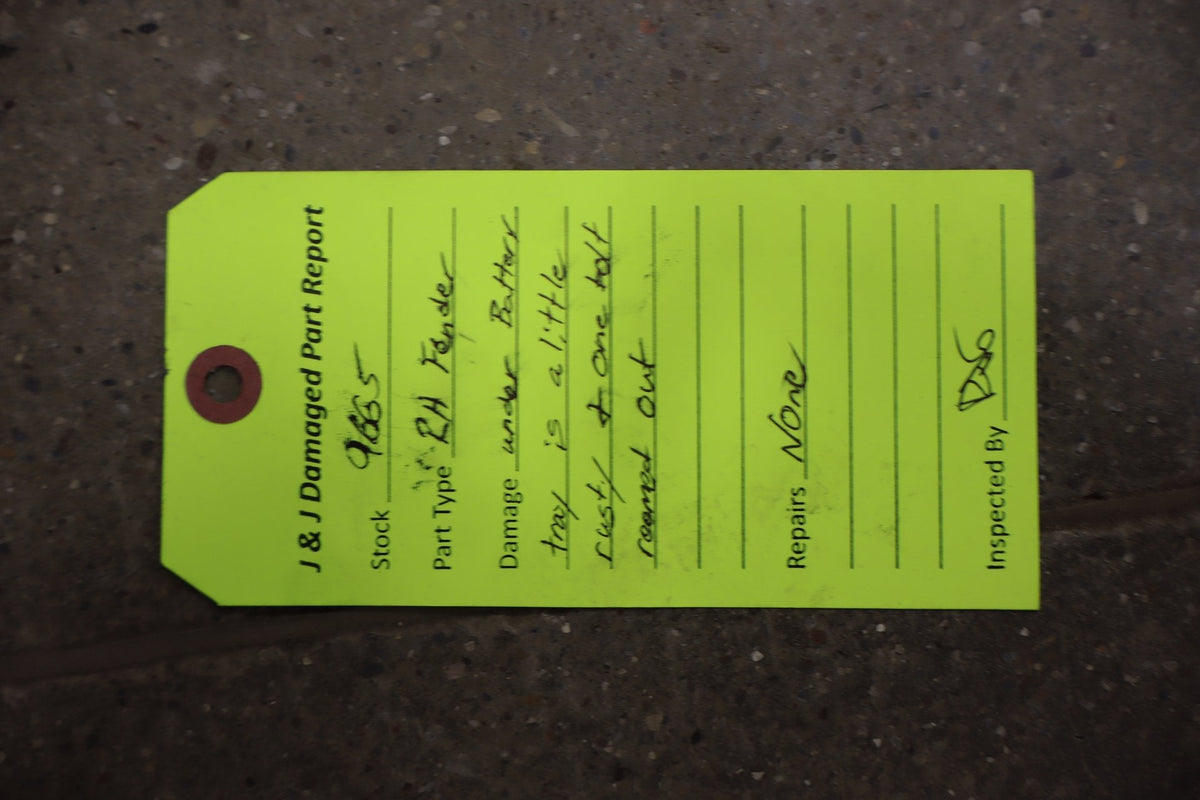 J & J Damaged Part Report
Stock 9665
Part Type RH Fender
Damage under Battery
tray is a little
rusty & one bolt
reamed out
Repairs None
Inspected By